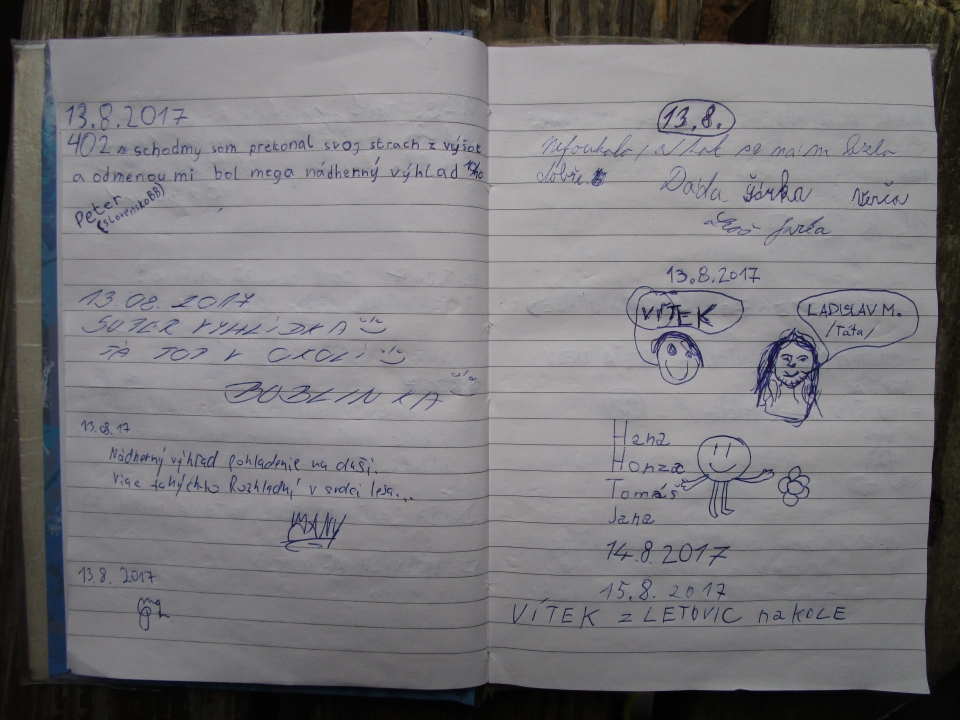 13.8.2017
402 schodmy som prekonal svoj strach z výšok
a odmenou mi bol mega nádherný výhlad
Peter
(Slovensko BB)
13.08.2017
SUPER VYHLÍDKA
TÁ TOP V OKOLÍ
BUBLINKA
13.08.17
Nádherný výhlad pohladenie na duši.
Viac takýchto Rozhladní v srdci lesa...
MANY
13.8.2017
13.8.
Nefoukalo, a tak se nám lezlo
dobře.
Dáda Šárka Verča
Jarka
13.8.2017
VÍTEK
LADISLAV M.
/Táta/
Hana
Honza
Tomáš
Jana
14.8.2017
15.8.2017
VÍTEK z LETOVIC na KOLE